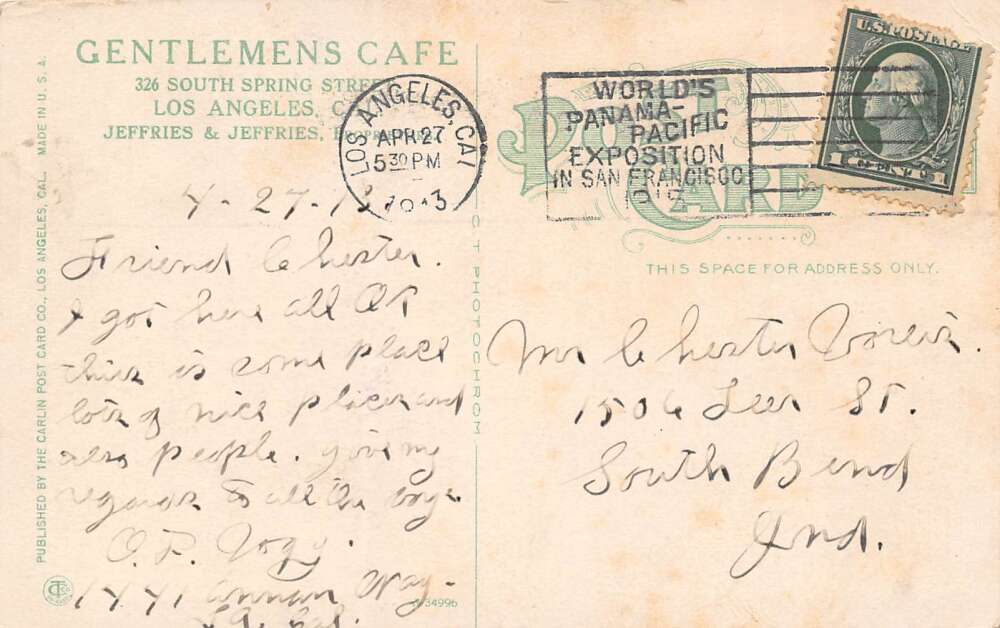 GENTLEMENS CAFE
326 SOUTH SPRING STREE
LOS ANGELES, C
JEFFRIES & JEFFRIES, PROPRIETORS
LOS ANGELES, CAL
APR 27
5 30 PM
1913
WORLD'S
PANAMA-
PACIFIC
EXPOSITION
IN SAN FRANCISCO
1915
U.S. POSTAGE
1 CENT 1
POST
CARD
THIS SPACE FOR ADDRESS ONLY.
4-27-13
Friend Chester.
I got here all OK
this is some place
lots of nice places and
also people. giving my
regards to all the boys
O.P. Vogy.
Way.
L.A. Cal.
Mr Chester
1506 Leer St.
South Bend
Ind.
PUBLISHED BY THE CARLIN POST CARD CO., LOS ANGELES, CAL. MADE IN U.S.A.
CT PHOTOCHROM
34996